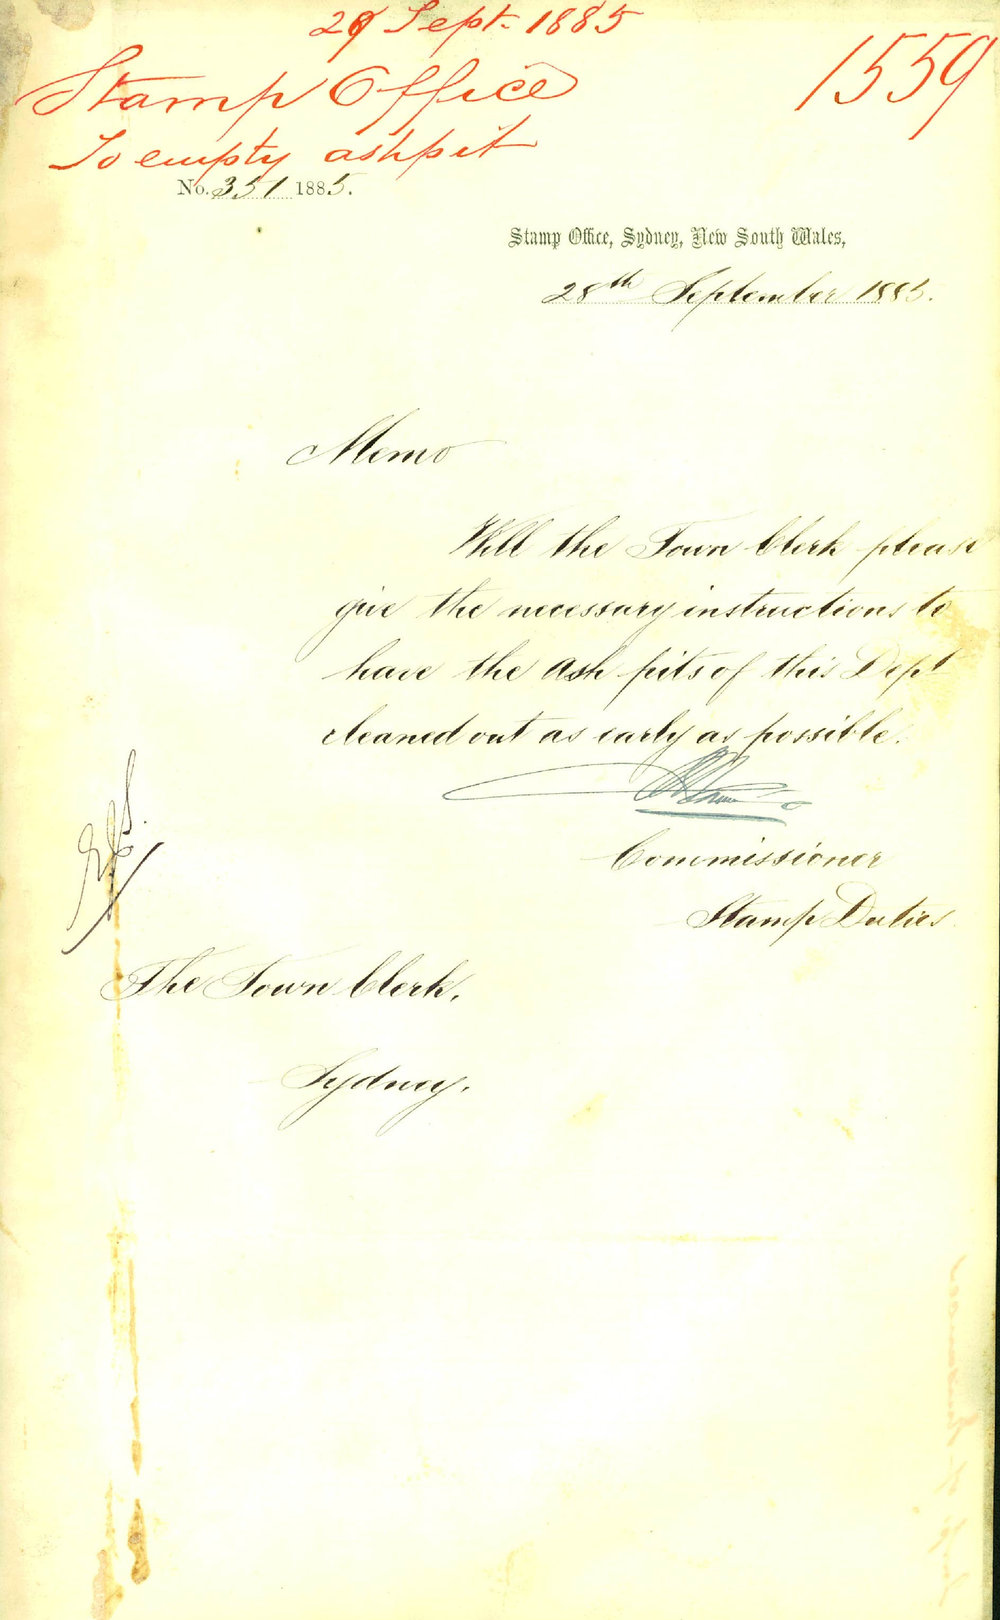 29 Sept. 1885
1559
Stamp Office
To empty ashpit
No. 351 1885.
Stamp Office, Sydney, New South Wales,
28th September 1885.
Memo
Will the Town Clerk please
give the necessary instructions to
have the Ash pits of this Dept
cleaned out as early as possible.
Commissioner
Stamp Duties
The Town Clerk,
Sydney.